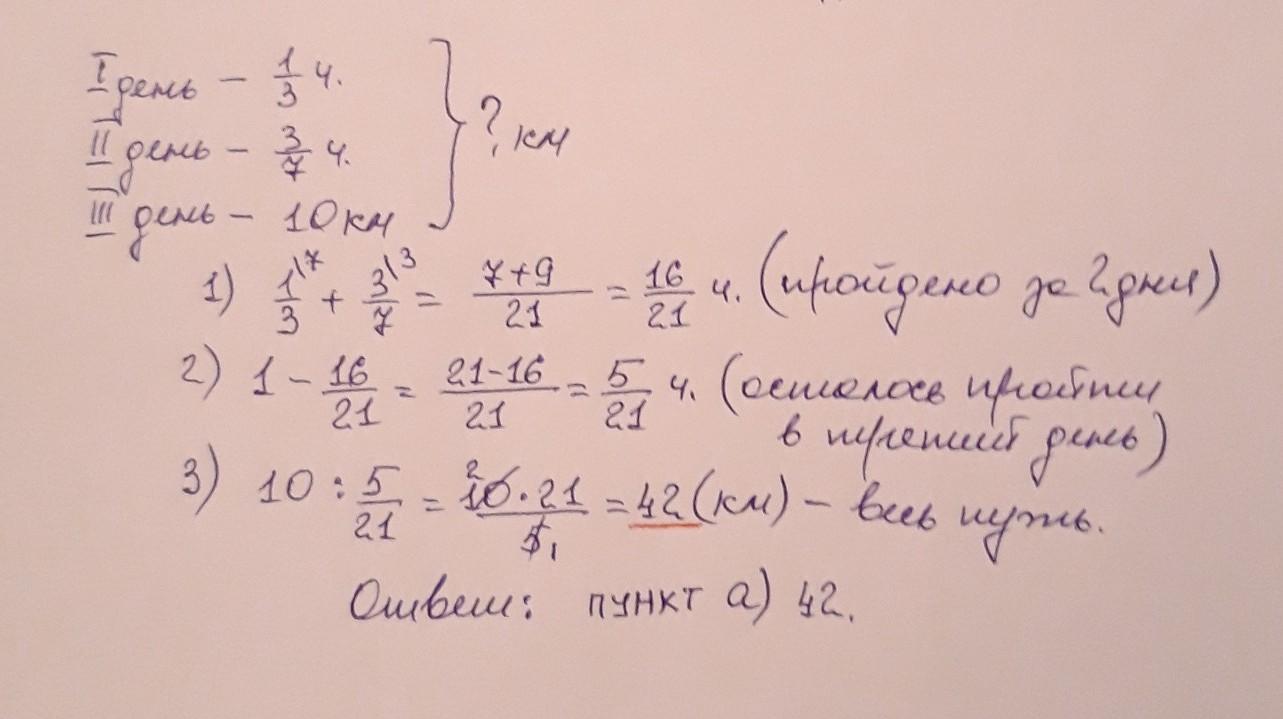 I день – 1/3 ч.
II день – 3/7 ч.
III день – 10 км
} ? км
1) 1\7/3 + 3\3/7 = 7+9/21 = 16/21 ч. (пройдено за 2 дня)
2) 1 – 16/21 = 21-16/21 = 5/21 ч. (осталось пройти
в третий день)
3) 10 : 5/21 = 2 10·21/5 1 = 42 (км) – весь путь.
Ответ: пункт а) 42.